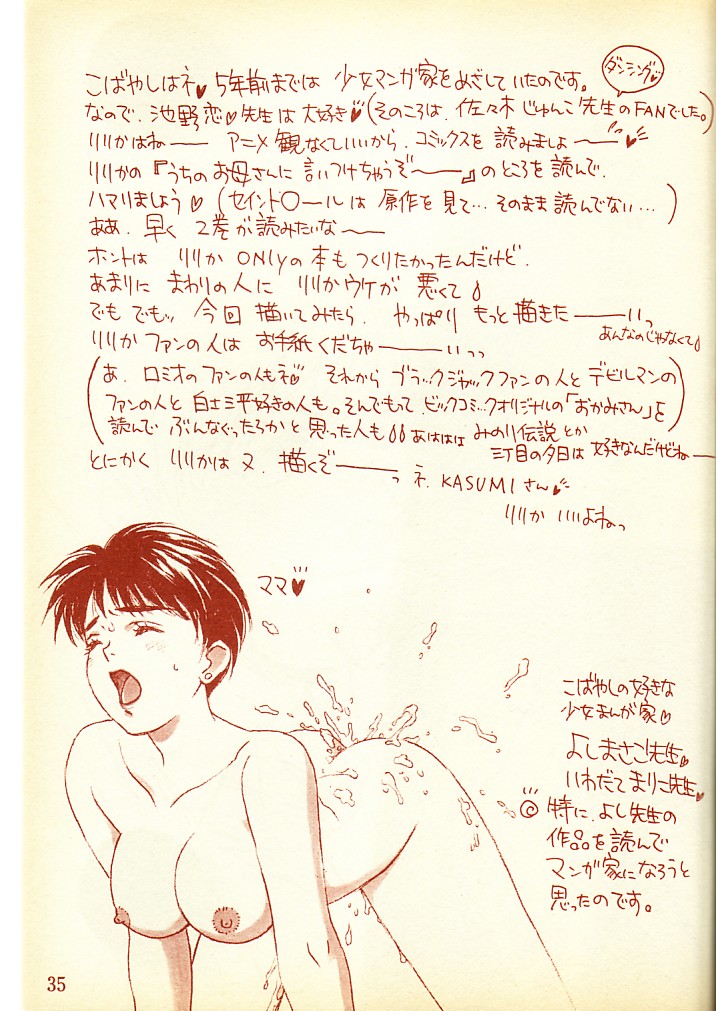 こばやしはネ♥5年前までは 少女マンガ家をめざしていたのです。
ダンシング♥
なので、池野恋♡先生は大好き♥(そのころは、佐々木じゅんこ先生のFANでした。)
リリかはねー アニメ観なくていいから、コミックスを読みましょー♥
リリかの『うちのお母さんに言いつけちゃうぞー』のところを読んで、
ハマりましょう♡(セイント〇ールは原作を見て…そのまま読んでない…)
ああ、早く2巻が読みたいなー
ホントは リリか ONLyの本もつくりたかったんだけど、
あまりにまわりの人に リリかウケが 悪くて
でもでもッ 今回描いてみたら、やっぱりもっと描きたーいっ
あんなのじゃなくて
リリか ファンの人は お手紙くだちゃーいっっ
(あ、ロミオのファンの人もネ♡ それから ブラックジャックファンの人とデビルマンの
ファンの人と 白土三平好きの人も。そんでもって ビックコミックオリジナルの「おかみさん」を
読んで ぶんなぐったろかと思った人も あははは みのり伝説とか
三丁目の夕日は 好きなんだけどねー
とにかく リリかは又、描くぞーっ ネ、KASUMIさん♥
リリか いいよねっ
ママ♥
こばやしの好きな
少女まんが家♡
よしまさこ先生♥
いわだてまりこ先生♥
◎特に、よし先生の
作品を読んで
マンガ家になろうと
思ったのです。
35